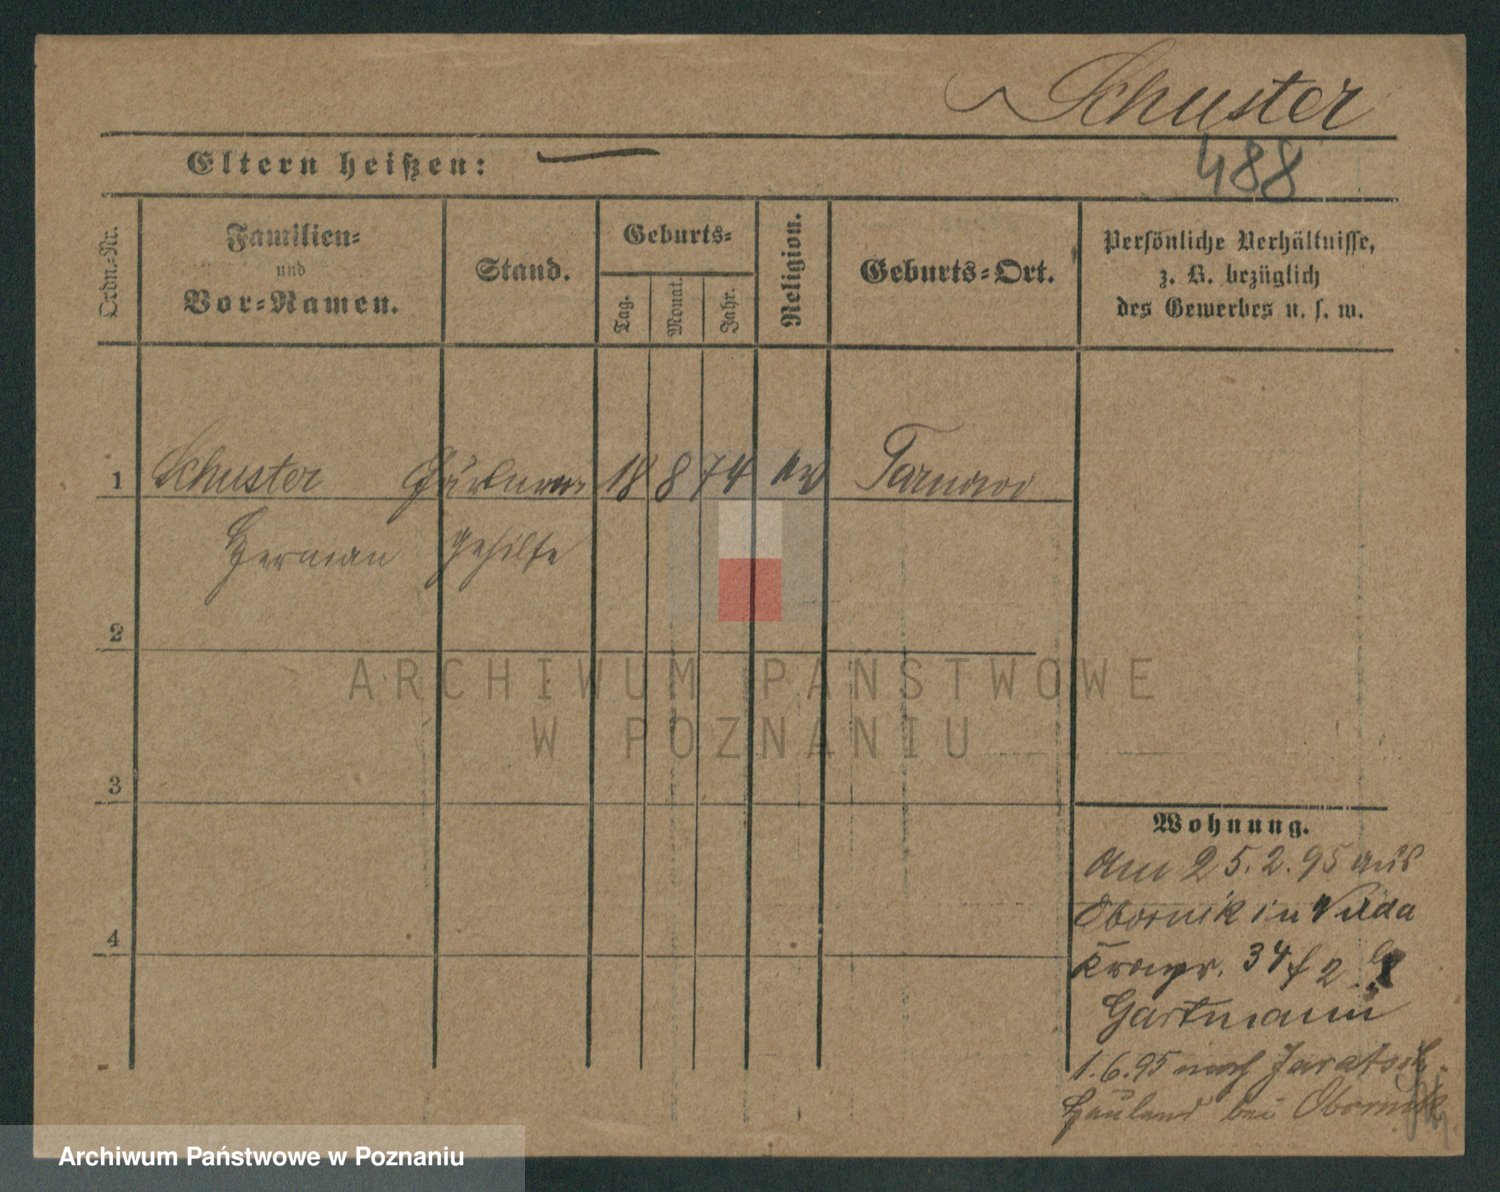 Schuster
Eltern heißen: —
488
Ordn.-Nr.
Familien-
und
Vor-Namen.
Stand.
Geburts-
Tag.
Monat.
Jahr.
Religion.
Geburts-Ort.
Persönliche Verhältnisse,
z. B. bezüglich
des Gewerbes u. s. w.
1 Schuster 18 8 74 ev Tarnowo
Herman Gehilfe
2
3
4
Wohnung.
Am 25.2.95 aus
Obornik in Wilda
Kronpr. 34
Gartmann
1.6.95 nach
Hauland bei Obornik
ARCHIWUM PAŃSTWOWE
W POZNANIU
Archiwum Państwowe w Poznaniu